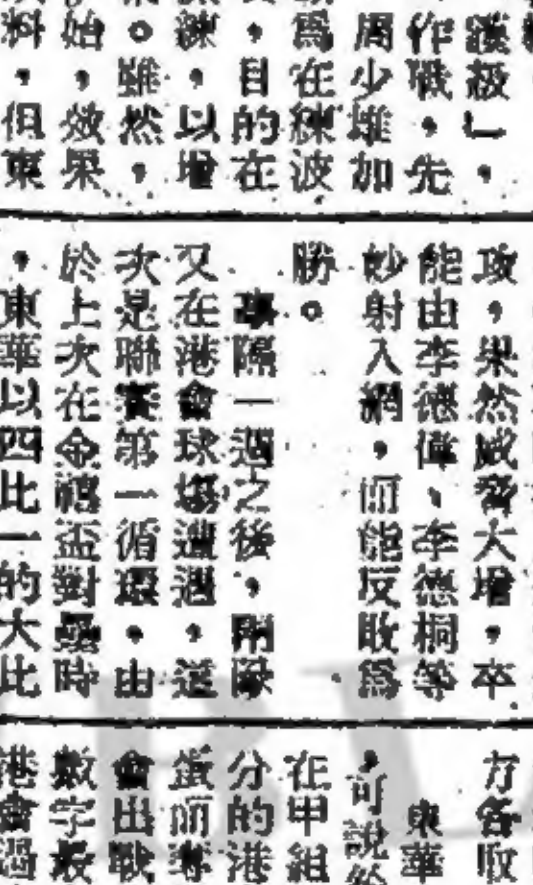 漢級」，
作戰，先
周少雄加
為在練波
，目的在
練，以增
。雖然，
始，效果
料，但東
攻，果然威脅大增，卒
能由李德偉、李德桐等
妙射入網，而能反敗為
勝。
事隔一週之後，兩隊
又在港會球場遭遇，這
次是聯賽第一循環，由
於上次在金禧盃對壘時
，東華以四比一的大比
方各收
東華
，可說
在甲組
分的港
蛋而奪
會出戰
數字最
港會過